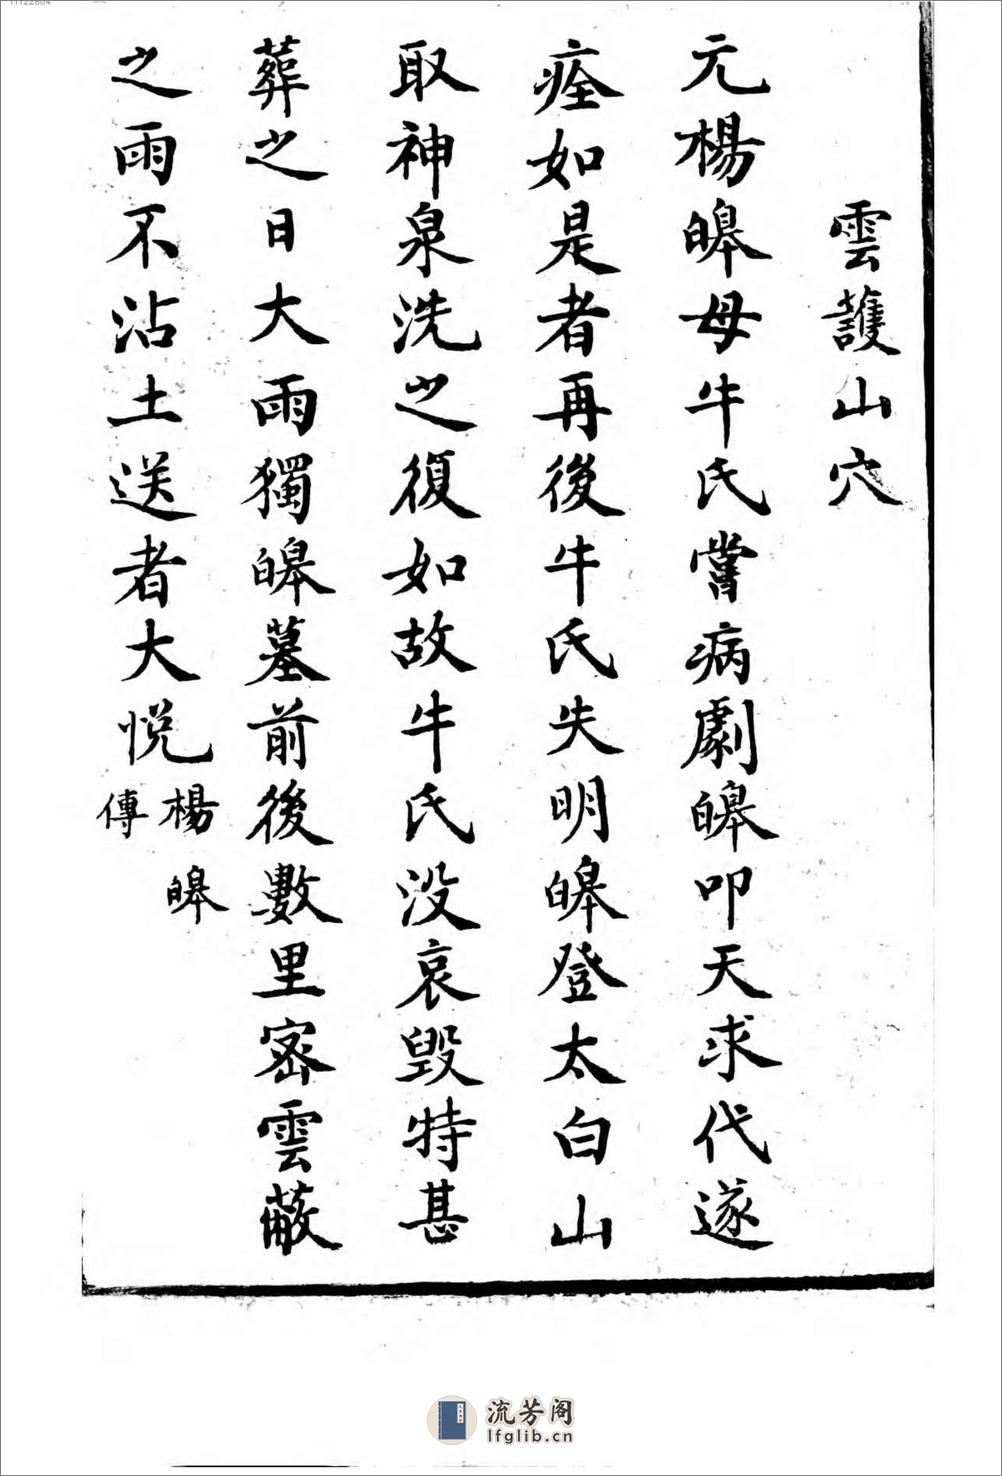 雲護山穴
元楊皞母牛氏嘗病劇皞叩天求代遂
痊如是者再後牛氏失明皞登太白山
取神泉洗之復如故牛氏没哀毀特甚
葬之日大雨獨皞墓前後數里密雲蔽
之雨不沾土送者大悦楊皞
傳
流芳阁
lfglib.cn